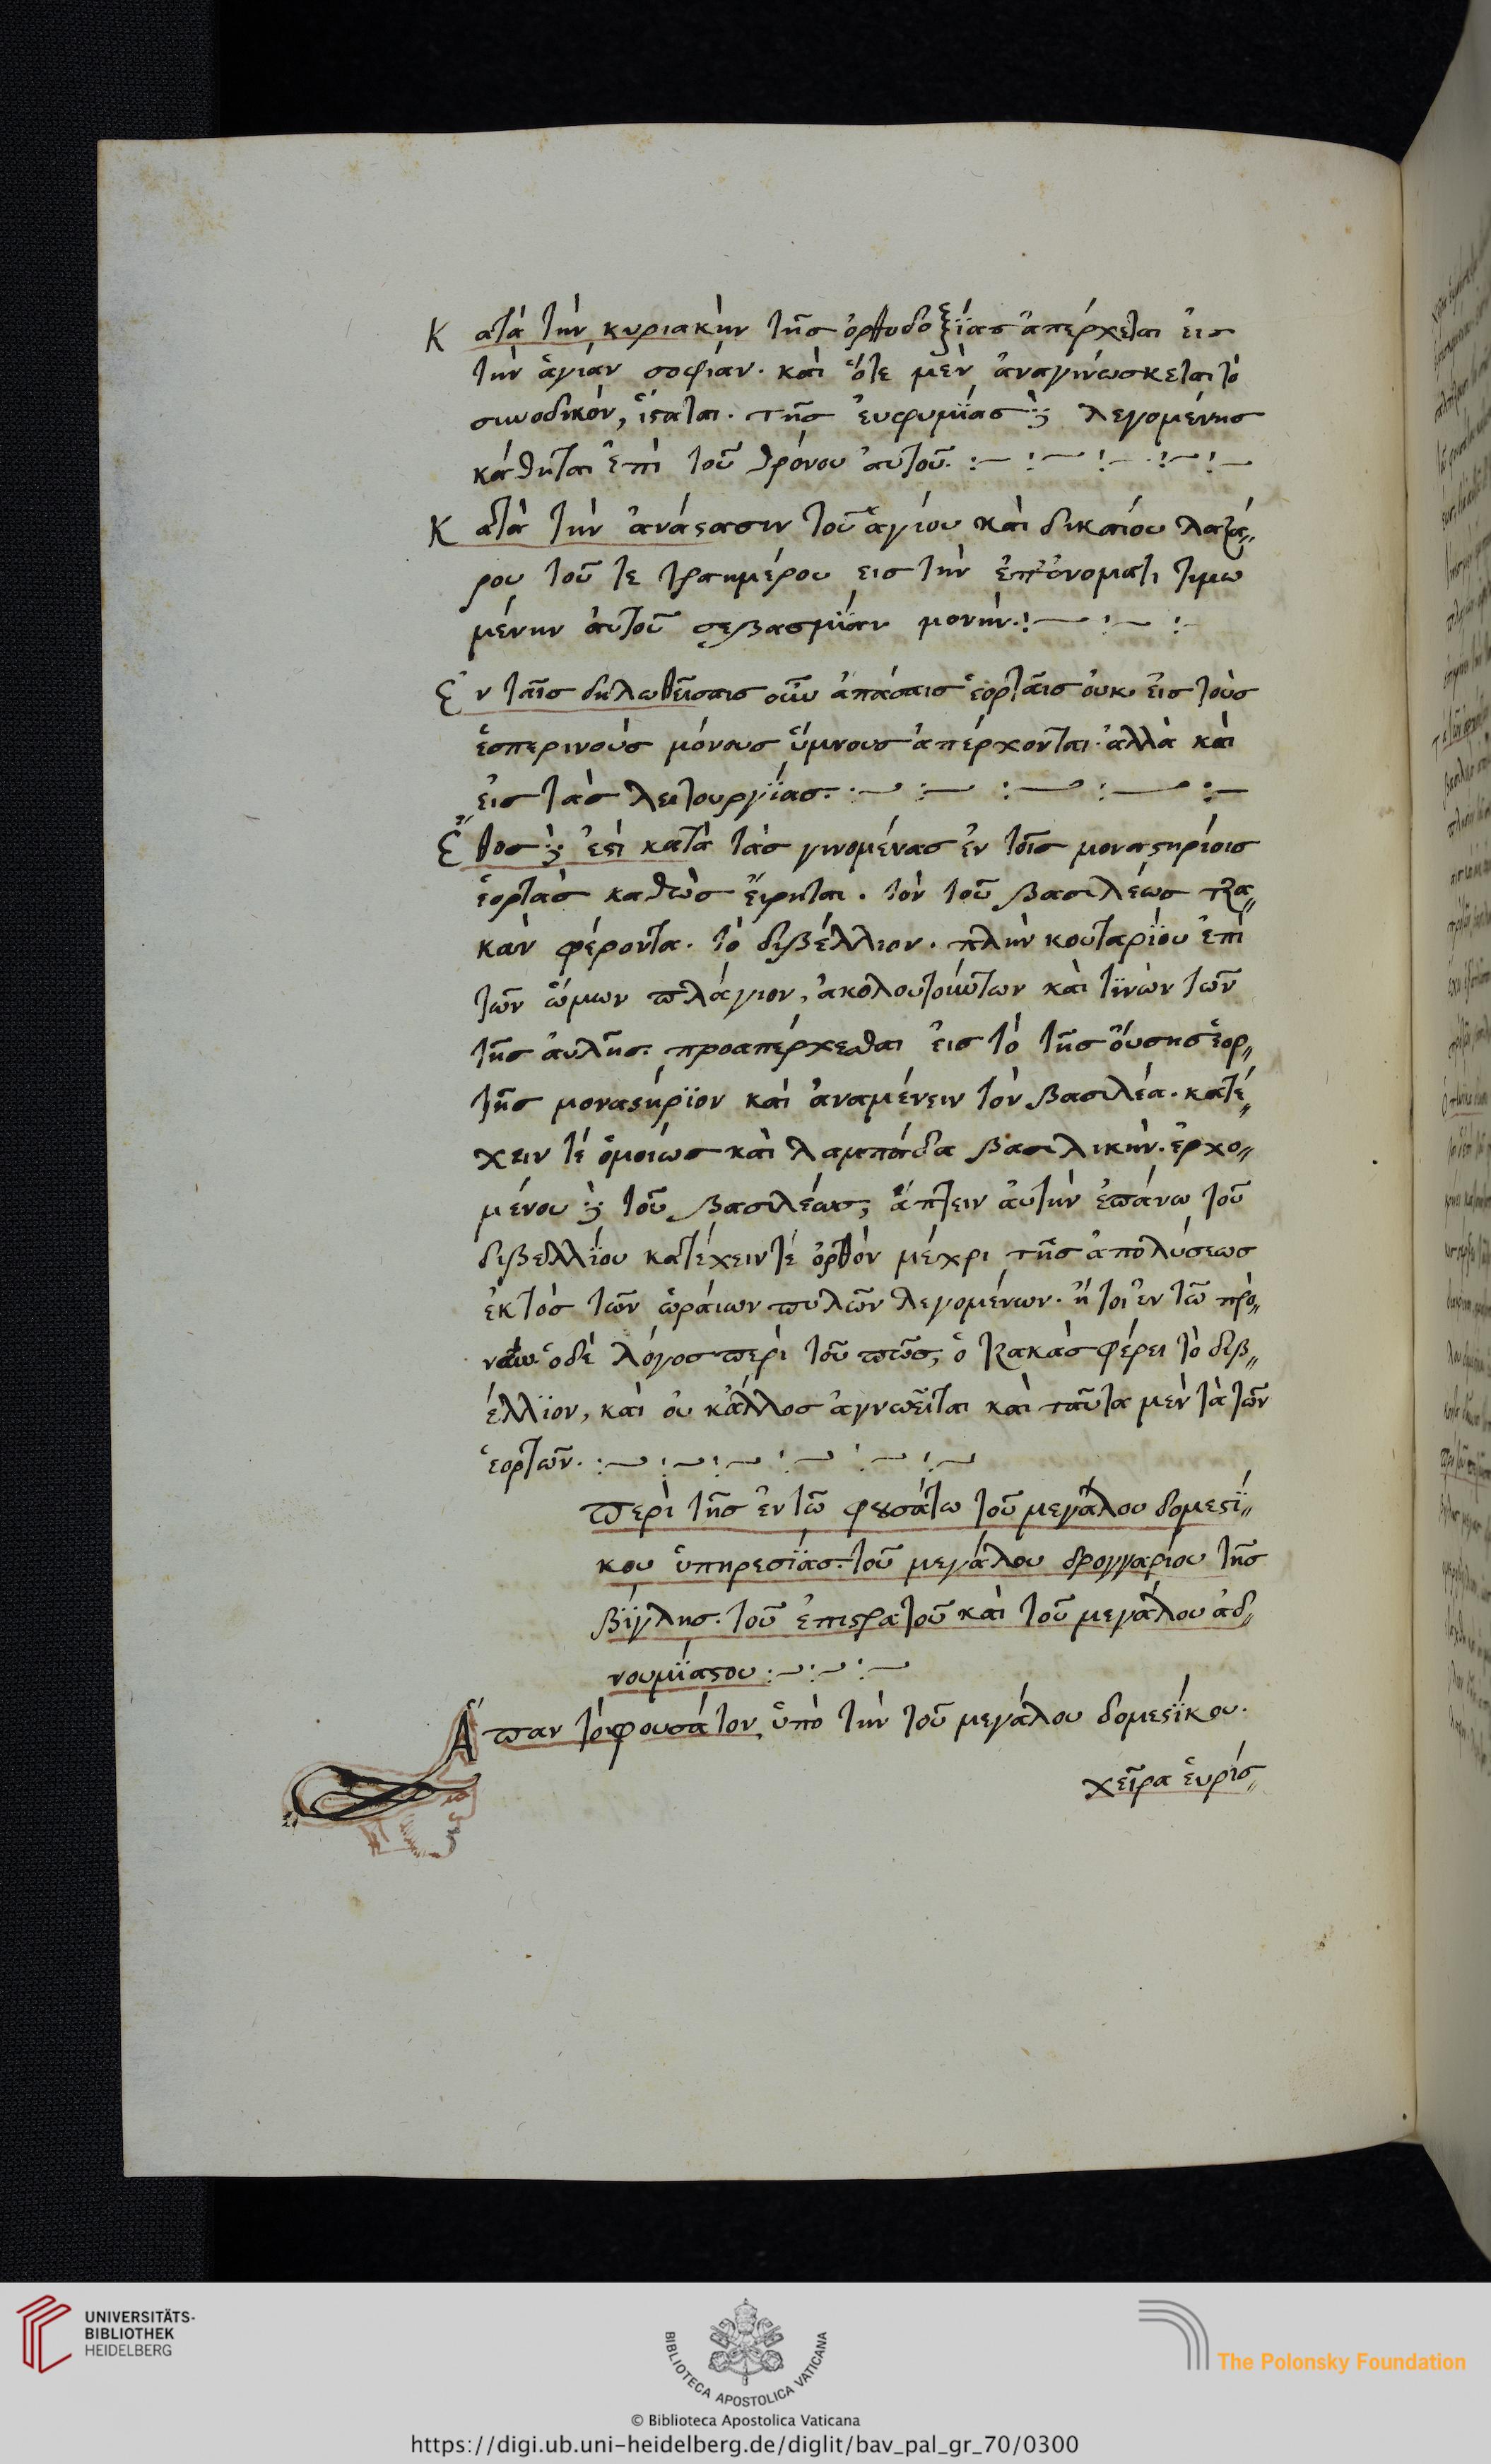 Κατὰ τὴν κυριακὴν τῆς ὀρθοδοξίας ἀπέρχεται εἰς
τὴν ἁγίαν σοφίαν. καὶ ὅτε μὲν ἀναγινώσκεται τὸ
συνοδικόν, ἵσταται. τῆς ἐυφυμίας δὲ λεγομένης
κάθηται ἐπὶ τοῦ θρόνου αὐτοῦ.
Κατὰ τὴν ἀνάστασιν τοῦ ἁγίου καὶ δικαίου λαζά
ρου τοῦ τετραημέρου εις τὴν ἐπ' ὀνόματι τιμω
μένην ἀυτοῦ σεβασμίαν μονήν.
Ἐν ταῖς δηλωθεῖσαις οὖν ἁπάσαις ἑορταῖς ὀυκ εἰς τοὺς
ἑσπερινοὺς μόνους ὕμνους ἀπέρχονται. ἀλλὰ καὶ
εἰς τὰς λειτουργίας.
Ἔθος δὲ ἐστὶ κατὰ τὰς γινομένας ἐν τοῖς μοναστηρίοις
ἑορτὰς καθὼς εἴρηται. τὸν τοῦ βασιλέως τζα
κὰν φέροντα. τὸ διβέλλιον. πλὴν κουταρίου ἐπὶ
τῶν ὤμων πλάγιον, ἀκολουτούντων καὶ τινῶν τῶν
τῆς ἀυλῆς. προαπέρχεσθαι εἰς τὸ τῆς ὄυσης ἑορ
τῆς μοναστήριον καὶ ἀναμένειν τὸν βασιλέα. κατέ
χειν τὲ ὁμοίως καὶ λαμπάδα βασιλικήν. ἐρχο
μένου δὲ τοῦ βασιλέως, ἅπτειν ἀυτὴν ἐπάνω τοῦ
διβελλίου κατέχειν τὲ ὀρθὸν μέχρι τῆς ἀπολύσεως
ἐκτὸς τῶν ὡράιων πυλῶν λεγομένων. ἤτοι ἐν τῶ προ
νάω. ὁ δὲ λόγος περὶ τοῦ πῶς, ὁ τζακὰς φέρει τὸ διβ
έλλιον, καὶ οὐκ ἄλλος ἀγνοεῖται καὶ ταῦτα μὲν τὰ τῶν
ἑορτῶν.
Περὶ τῆς ἐν τῶ φουσάτω τοῦ μεγάλου δομεστί
κου ὑπηρεσίας. τοῦ μεγάλου δρογγαρίου τῆς
βίγλης. τοῦ ἐπιστρατοῦ καὶ τοῦ μεγάλου ἀδ
νουμίαστου
Ἅπαν τὸ φουσάτον ὑπὸ τὴν τοῦ μεγάλου δομεστίκου.
χεῖρα ἑυρίσ
UNIVERSITÄTS-
BIBLIOTHEK
HEIDELBERG
BIBLIOTECA APOSTOLICA VATICANA
The Polonsky Foundation
© Biblioteca Apostolica Vaticana
https://digi.ub.uni-heidelberg.de/diglit/bav_pal_gr_70/0300